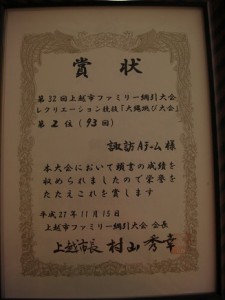 賞状
第32回上越市ファミリー綱引大会
レクリエーション競技「大縄跳び大会」
第2位(93回)
諏訪Aチーム様
本大会において頭書の成績を
収められましたので栄誉を
たたえこれを賞します
平成21年11月15日
上越市ファミリー綱引大会 会長
上越市長 村山秀幸